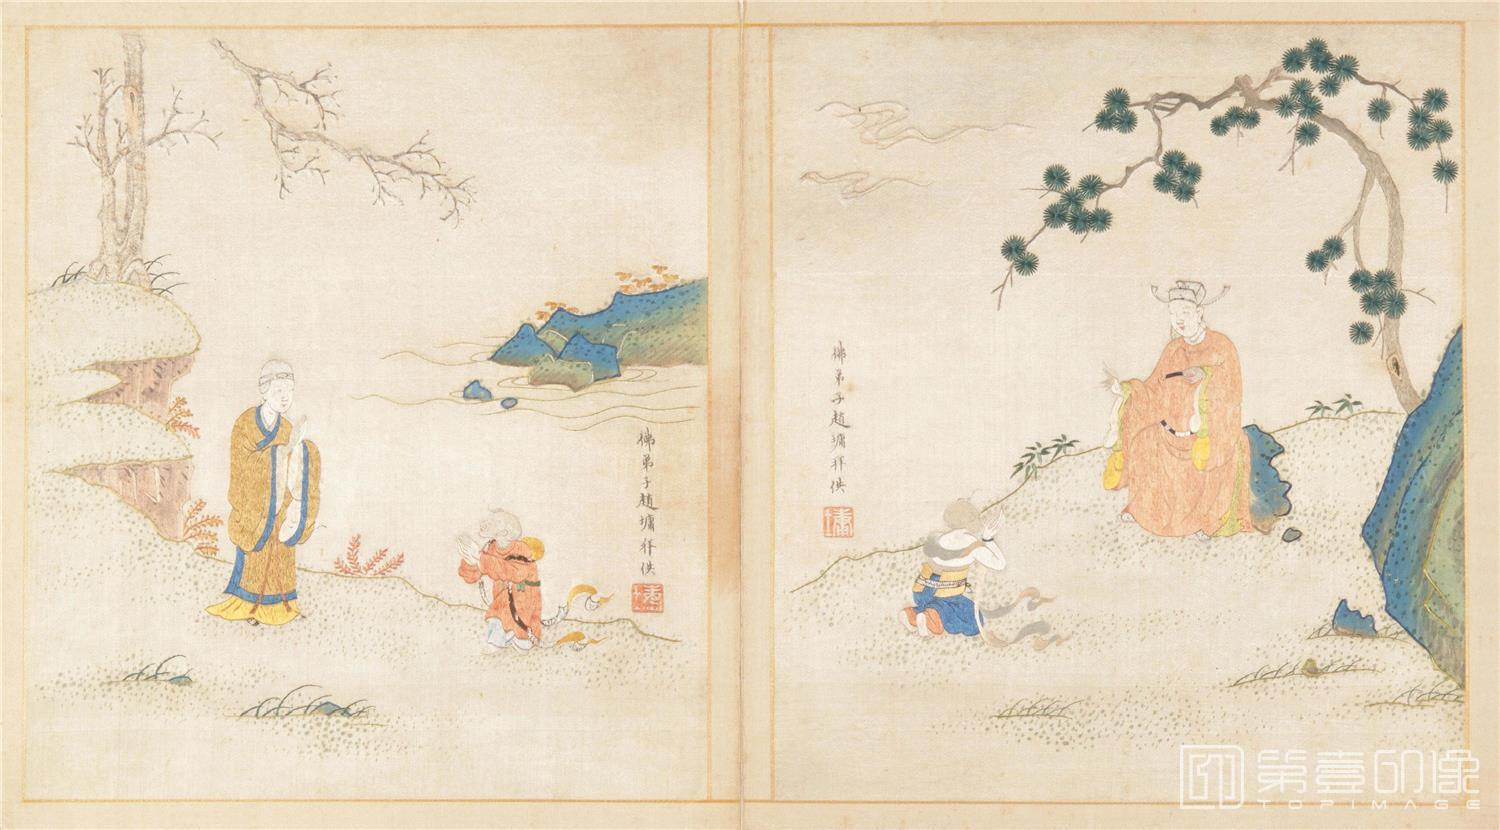 佛弟子趙墉拜供
佛弟子趙墉拜供
第壹印像
TOPIMAGE